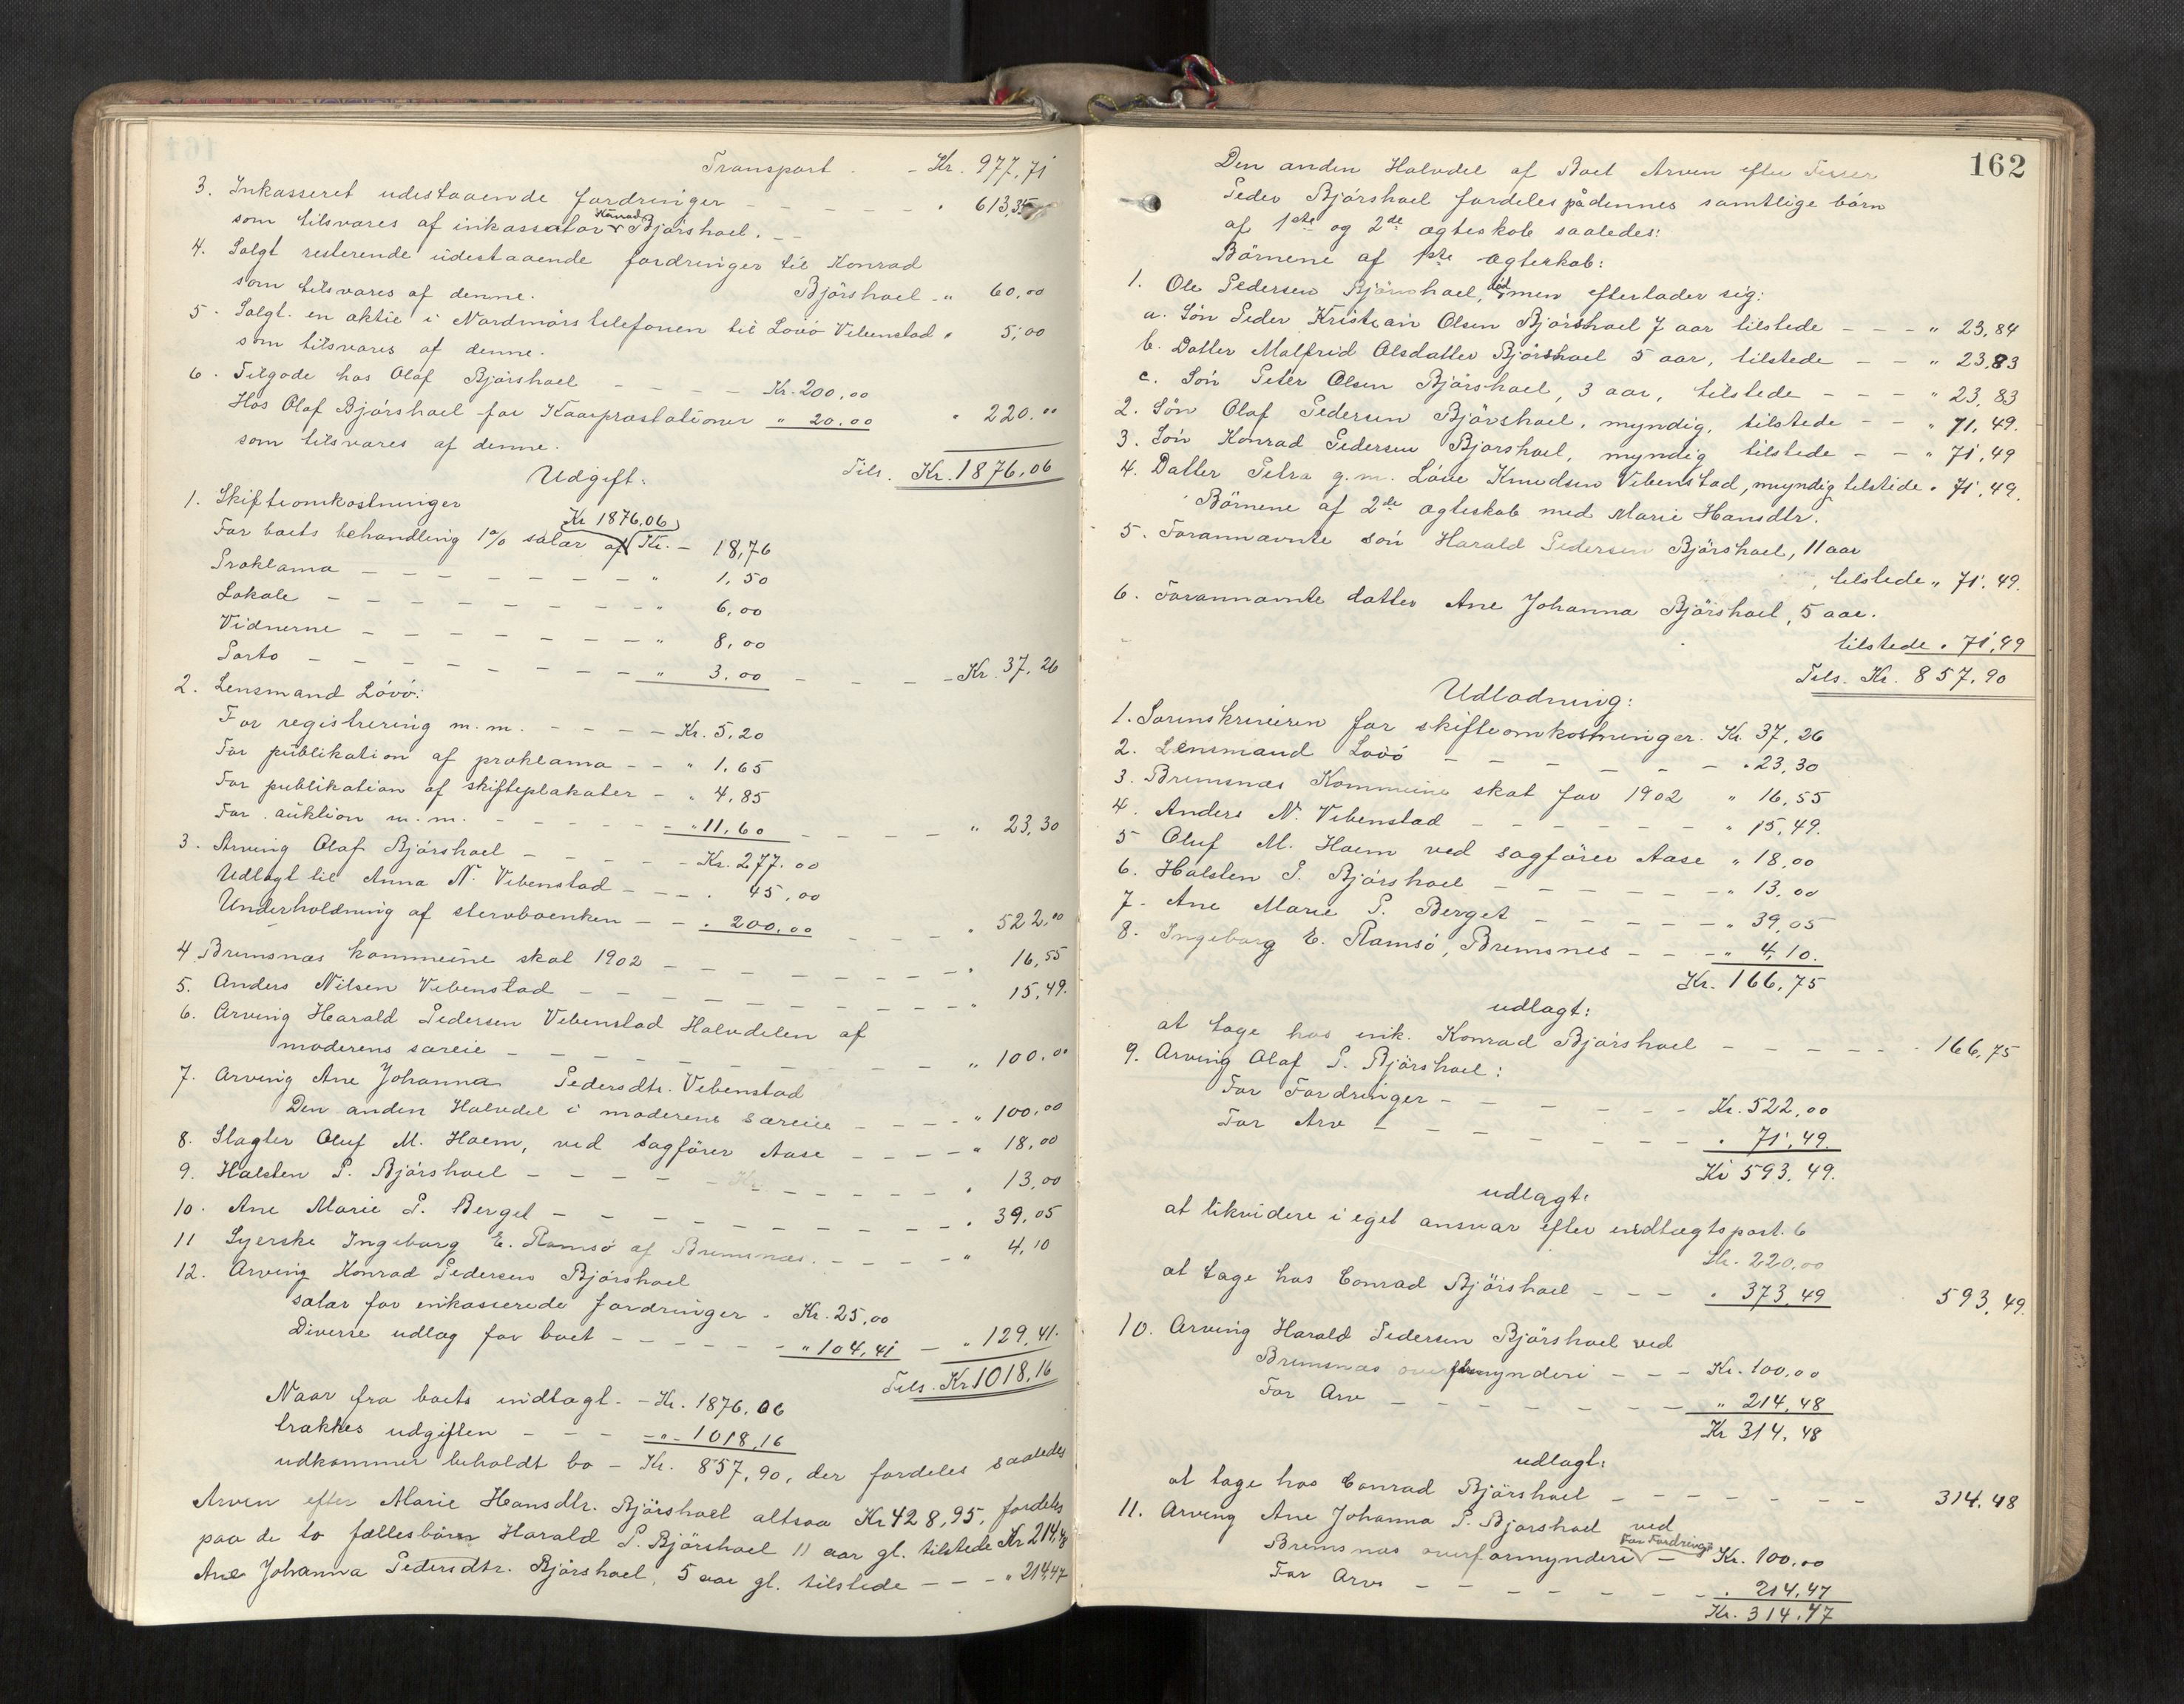 Transport - Kr. 977,71
3. Inkasseret udestaaende fordringer - - - - - " 613,35
som tilsvares af inkassator Konrad Bjørshoel. - -
4. Solgt resterende udestaaende fordringer til Konrad
Bjørshoel - " 60,00
som tilsvares af denne.
5. Solgt en aktie i Nordmørstelefonen til Lovø Vebenstad " 5,00
som tilsvares af denne.
6. Tilgode hos Olaf Bjørshoel - - - - Kr. 200,00
Hos Olaf Bjørshoel for Kaarpræstationer " 20.00 " 220.00
som tilsvares af denne.
Tils. Kr. 1876,06
Udgift:
1. Skifteomkostninger
For boets behandling 1% salær af Kr 1876,06 Kr. - 18,76
Proklama - - - - - - - " 1,50
Lokale - - - - - - - - " 6,00
Vidnerne - - - - - - - " 8,00
Porto - - - - - - - - " 3,00 - - - - Kr. 37,26
2. Lensmand Lövö:
For registrering m. m. - - - - Kr. 5,20
For publikation af proklama - - " 1,65
For publikation af skifteplakater - " 4,85
For auktion m. m. - - - - - " 11,60 - - - - " 23,30
3. Arving Olaf Bjørshoel - - - - - Kr. 277.00
Udlagt til Anna N. Vebenstad - - - . 45,00
Underholdning af stervboenken - - . 200,00 - - - " 522,00
4. Bremsnæs kommune skat 1902 - - - - - - - . 16,55
5. Anders Nilsen Vebenstad - - - - - - - - - " 15,49.
6. Arving Harald Pedersen Vebenstad Halvdelen af
moderens særeie - - - - - - - - - - " 100.00
7. Arving Ane Johanna Pedersdtr. Vebenstad
Den anden Halvdel i moderens særeie - - - - " 100,00
8. Slagter Oluf M. Hoem, ved Sagfører Aase - - - - " 18,00
9. Halsten P. Bjørshoel - - - - - - - - - . 13,00
10. Ane Marie P. Berget - - - - - - - - - - . 39,05
11 Syerske Ingeborg E. Ramsø af Bremsnæs. - - - - " 4,10
12. Arving Konrad Pedersen Bjørshoel
salær for inkasserede fordringer - Kr. 25,00
Diverse udlæg for boet - - - - - " 104,41 - " 129,41.
Tils. Kr 1018,16
Naar fra boets indtægt - Kr. 1876,06
trækkes udgiften - - - - " - 1018,16
udkommer beholdt bo - Kr. 857,90, der fordeles saaledes
Arven efter Marie Hansdtr. Bjørshoel altsaa Kr 428,95, fordeles
paa de to fællesbørn Harald P. Bjørshoel 11 aar gl. tilstede Kr 214,48
Ane Johanna Pedersdtr. Bjørshoel, 5 aar gl. tilstede - - - " 214,47
162
Den anden Halvdel af Boet Arven efter
Peder Bjørshoel fordeles på dennes samtlige børn
af 1ste og 2de ægteskab saaledes:
Børnene af 1ste ægteskab:
1. Ole Pedersen Bjørshoel, død men efterlader sig:
a. Søn Peder Kristian Olsen Bjørshoel 7 aar tilstede - - - " 23,84
b. Datter Malfrid Olsdatter Bjørshoel 5 aar, tilstede - - " 23,83
c. Søn Peter Olsen Bjørshoel, 3 aar, tilstede - - - " 23,83
2. Søn Olaf Pedersen Bjørshoel, myndig, tilstede - - " 71,49.
3. Søn Konrad Pedersen Bjørshoel, myndig tilstede - - " 71,49
4. Datter Petra g. m. Löve Knudsen Vebenstad, myndig tilstede . 71,49.
Børnene af 2de ægteskab med Marie Hansdtr.
5. Forannævnte søn Harald Pedersen Bjørshoel, 11 aar
tilstede " 71,49.
6. Forannævnte datter Ane Johanna Bjørshoel, 5 aar.
tilstede . 71,49
Tils. Kr. 857,90
Udlodning:
1. Sorenskriveren for skifteomkostninger. Kr. 37,26
2. Lensmand Lovö - - - - - - . 23,30
3. Bremsnæs Kommune skat for 1902 " 16,55
4. Anders N. Vebenstad - - - - - - " 15,49.
5 Oluf M. Hoem ved sagfører Aase " 18,00
6. Halsten P. Bjørshoel - - - - - - " 13,00
7. Ane Marie P. Berget - - - - - " 39,05
8. Ingeborg E. Ramsö, Bremsnes - - - " 4,10.
Kr. 166,75
udlagt:
at tage hos ink. Konrad Bjørshoel - - - - - - 166,75
9. Arving Olaf P. Bjørshoel:
For Fordringer - - - - - - Kr. 522,00
For Arv - - - - - - - - . 71,49.
Kr 593,49.
udlagt:
at likvidere i eget ansvar efter indtægtspost 6
Kr. 220,00
at tage hos Conrad Bjørshoel - - - . 373,49 593,49.
10. Arving Harald Pedersen Bjørshoel ved
Bremsnæs overformynderi - - - Kr. 100,00
For Arv - - - - - - - " 214,48
Kr 314,48
udlagt:
at tage hos Conrad Bjørshoel - - - - - - - 314,48
11. Arving Ane Johanna P. Bjørshoel ved
Bremsnæs overformynderi For Fordring - Kr. 100,00
For Arv - - - - - - - . 214,47
Kr. 314,47